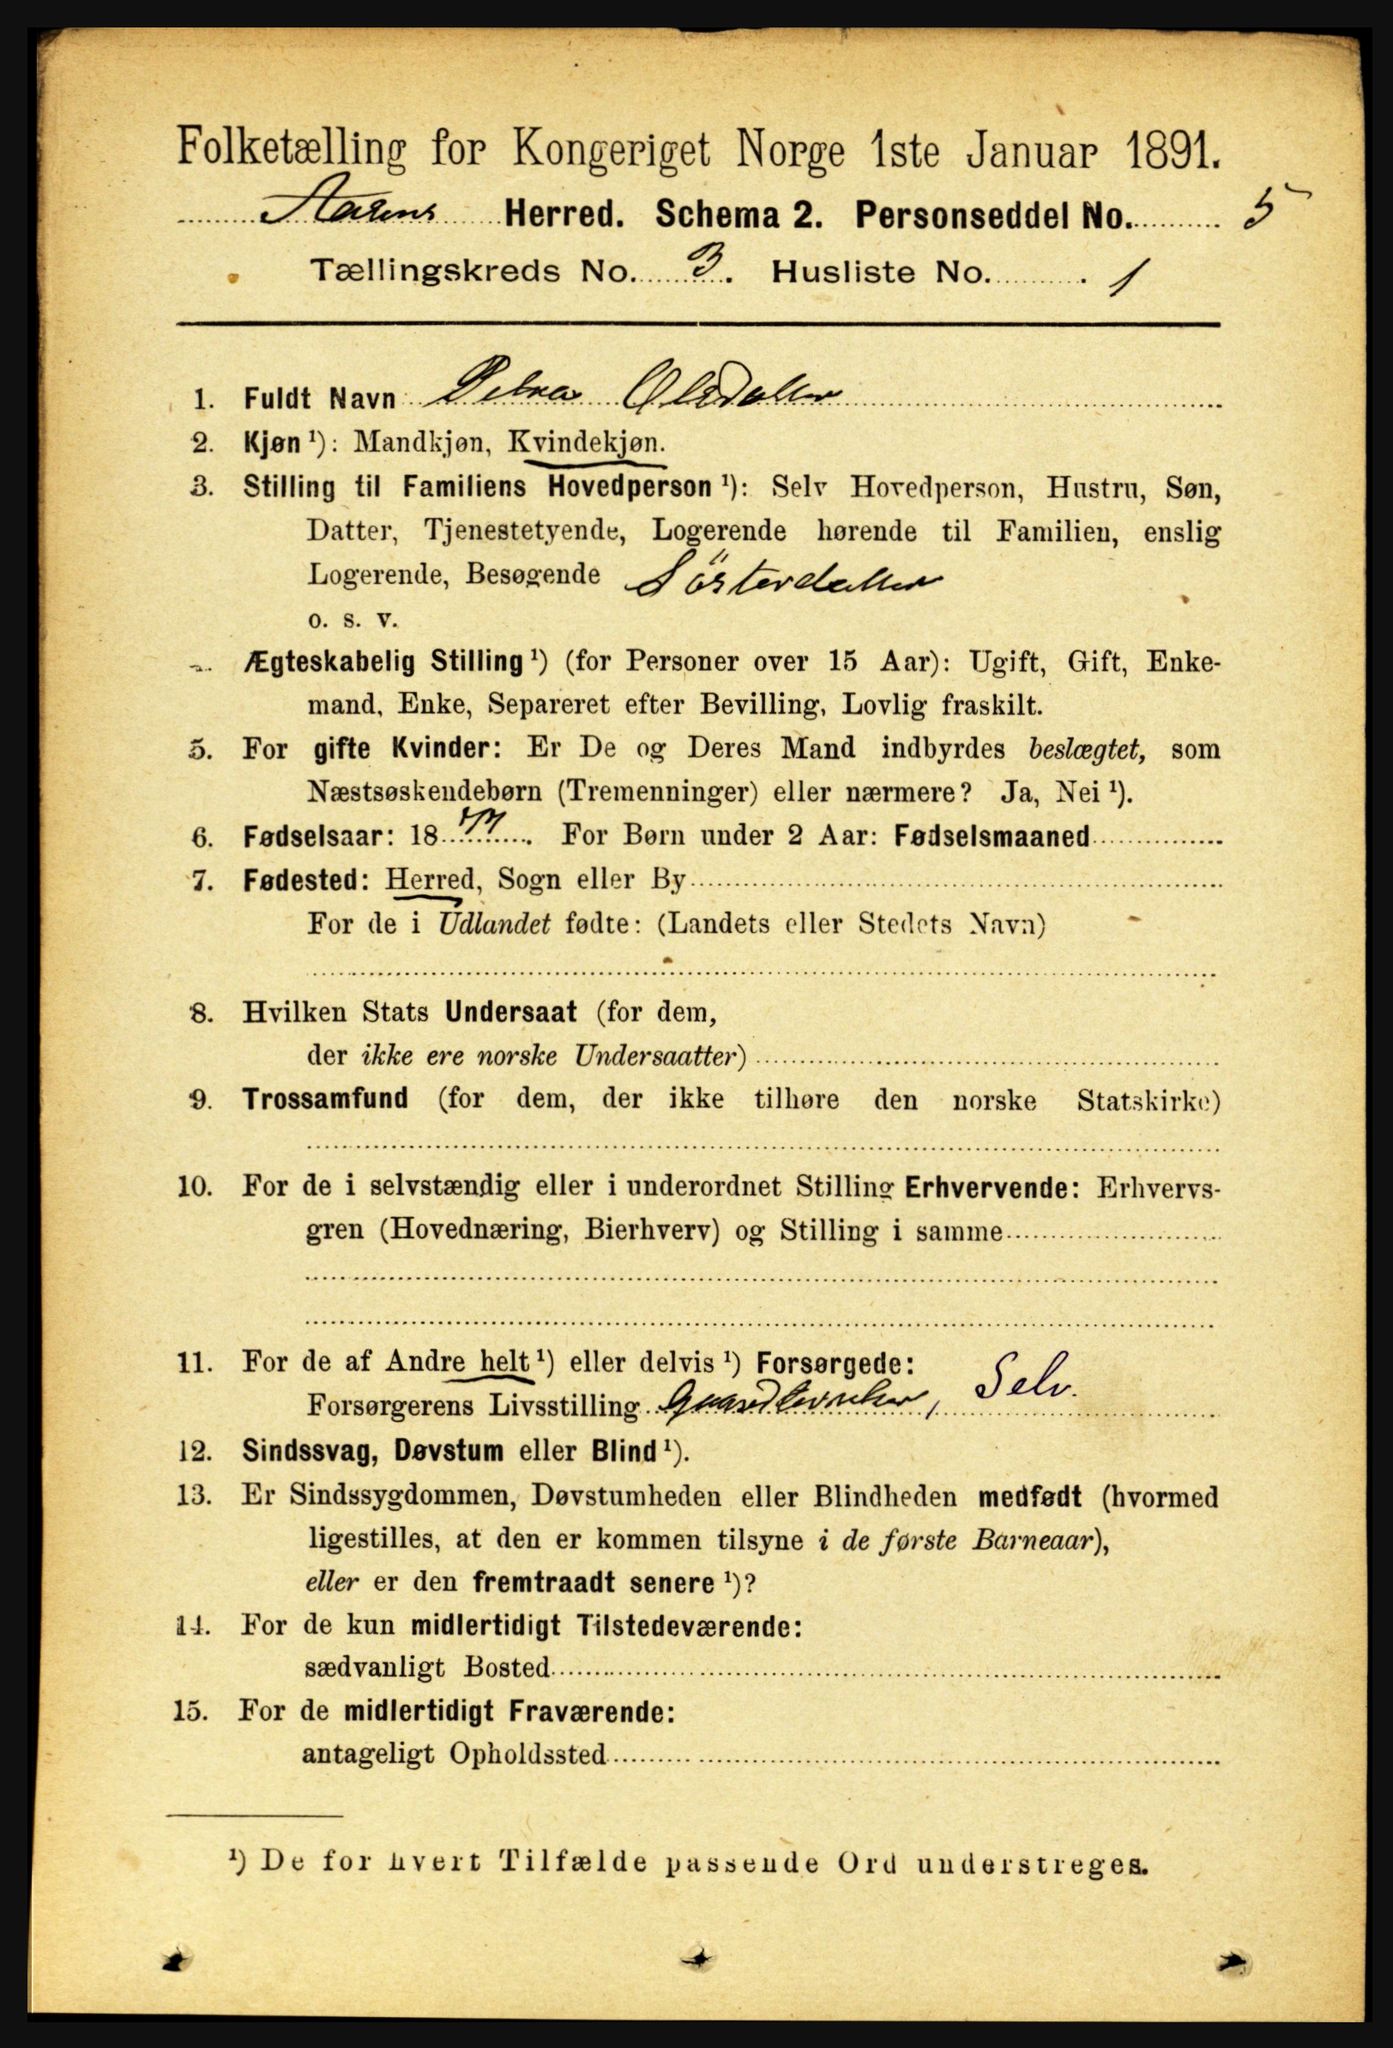 Folketælling for Kongeriget Norge 1ste Januar 1891.
Herred. Schema 2. Personseddel No. 5
Tællingskreds No. 3. Husliste No. 1
1. Fuldt Navn Petra Olsdatter
2. Kjøn ¹): Mandkjøn, Kvindekjøn.
3. Stilling til Familiens Hovedperson ¹): Selv Hovedperson, Hustru, Søn,
Datter, Tjenestetyende, Logerende hørende til Familien, enslig
Logerende, Besøgende Sösterdatter
o. s. v.
Ægteskabelig Stilling ¹) (for Personer over 15 Aar): Ugift, Gift, Enke-
mand, Enke, Separeret efter Bevilling, Lovlig fraskilt.
5. For gifte Kvinder: Er De og Deres Mand indbyrdes beslægtet, som
Næstsøskendebørn (Tremenninger) eller nærmere? Ja, Nei ¹).
6. Fødselsaar: 1877. For Børn under 2 Aar: Fødselsmaaned
7. Fødested: Herred, Sogn eller By
For de i Udlandet fødte: (Landets eller Stedets Navn)
8. Hvilken Stats Undersaat (for dem,
der ikke ere norske Undersaatter)
9. Trossamfund (for dem, der ikke tilhøre den norske Statskirke)
10. For de i selvstændig eller i underordnet Stilling Erhvervende: Erhvervs-
gren (Hovednæring, Bierhverv) og Stilling i samme
11. For de af Andre helt ¹) eller delvis ¹) Forsørgede:
Forsørgerens Livsstilling Gaardbruker, Selv.
12. Sindssvag, Døvstum eller Blind ¹).
13. Er Sindssygdommen, Døvstumheden eller Blindheden medfødt (hvormed
ligestilles, at den er kommen tilsyne i de første Barneaar),
eller er den fremtraadt senere ¹)?
14. For de kun midlertidigt Tilstedeværende:
sædvanligt Bosted
15. For de midlertidigt Fraværende:
antageligt Opholdssted
¹) De for hvert Tilfælde passende Ord understreges.